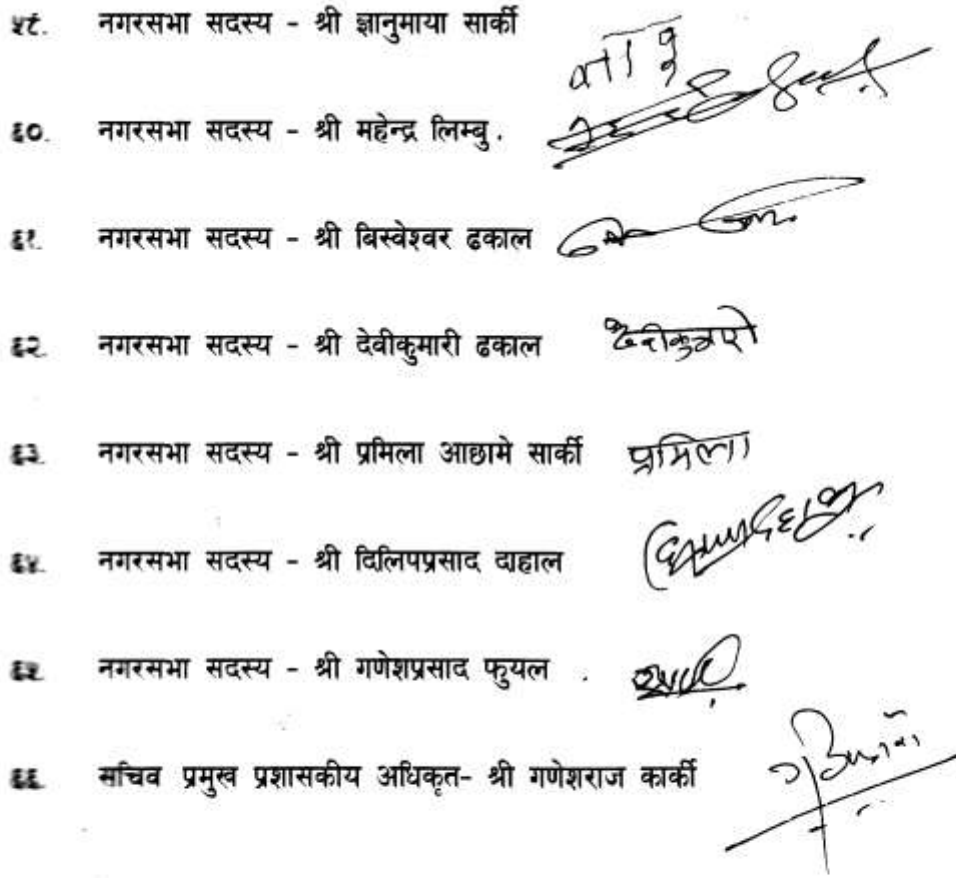 ५९. नगरसभा सदस्य - श्री ज्ञानुमाया सार्की
६०. नगरसभा सदस्य - श्री महेन्द्र लिम्बु.
६१. नगरसभा सदस्य - श्री बिस्वेश्वर ढकाल
६२. नगरसभा सदस्य - श्री देवीकुमारी ढकाल देवीकुमारी
६३. नगरसभा सदस्य - श्री प्रमिला आछामे सार्की प्रमिला
६४. नगरसभा सदस्य - श्री दिलिपप्रसाद दाहाल
६५. नगरसभा सदस्य - श्री गणेशप्रसाद फुयल .
६६. सचिव प्रमुख प्रशासकीय अधिकृत- श्री गणेशराज कार्की